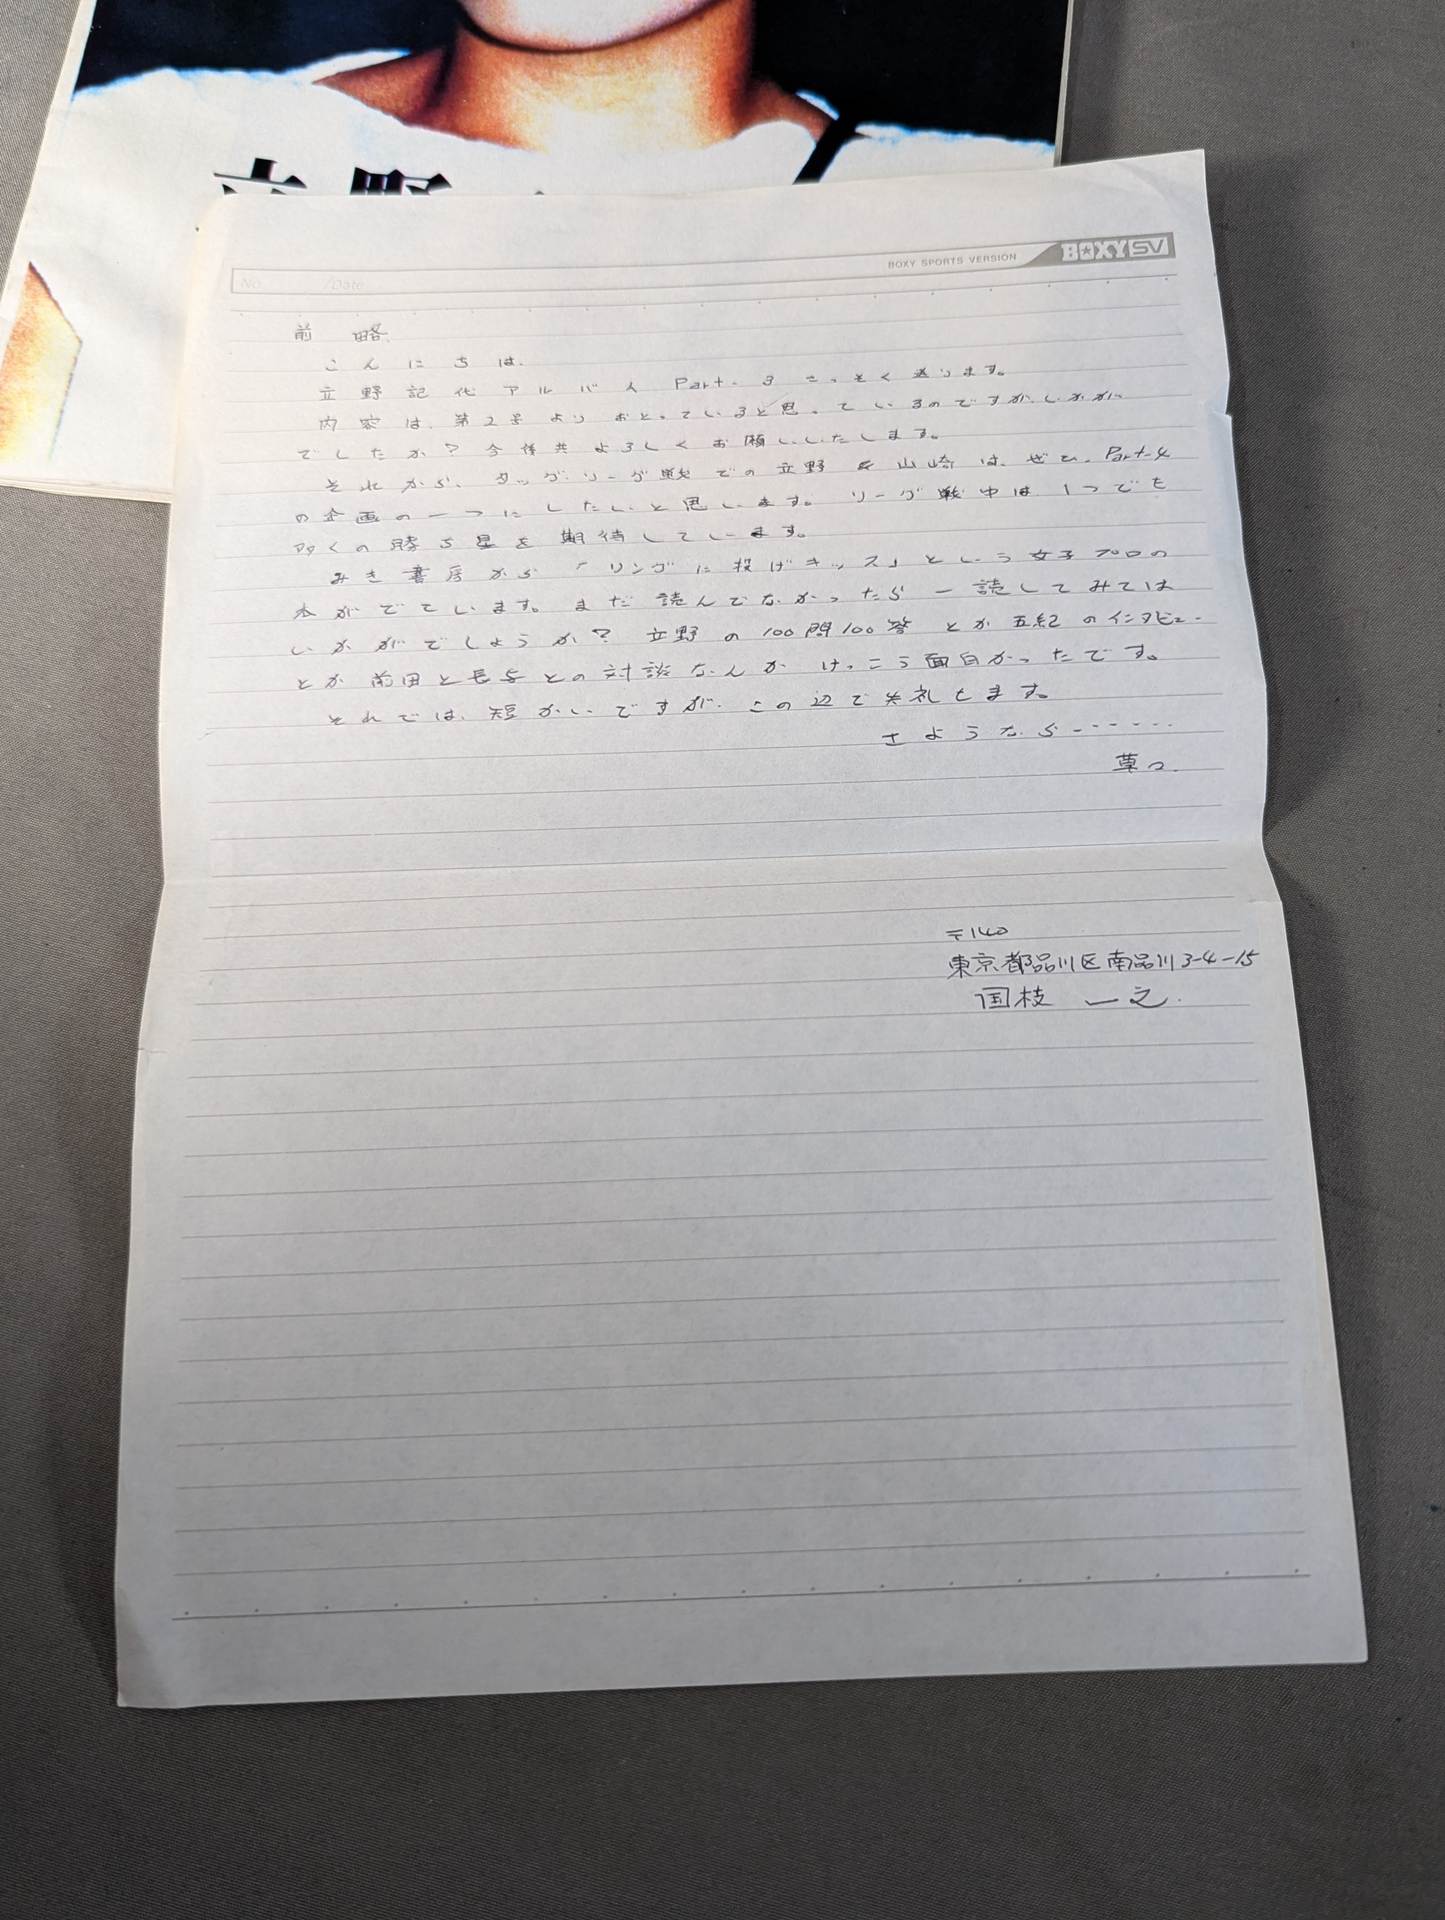 立野
BOXY SPORTS VERSION BOXY SV
No. /Date
前略.
こんにちは.
立野記代アルバム Part-3 さっそく送ります。
内容は、第2号よりおとっていると思っているのですが、いかが
でしたか？今後共よろしくお願いいたします。
それから、タッグ・リーグ戦での立野&山崎は、ぜひ、Part-4
の企画の一つにしたいと思います。リーグ戦中は1つでも
多くの勝ち星を期待しています。
みき書房から「リングに投げキッス」という女子プロの
本がでています。まだ読んでなかったら一読してみては
いかがでしょうか？立野の100問100答とか五紀のインタビュー
とか前田と長与との対談なんかけっこう面白かったです。
それでは、短かいですが、この辺で失礼します。
さようなら------
草々.
〒140
東京都品川区南品川3-4-15
国枝 一之.